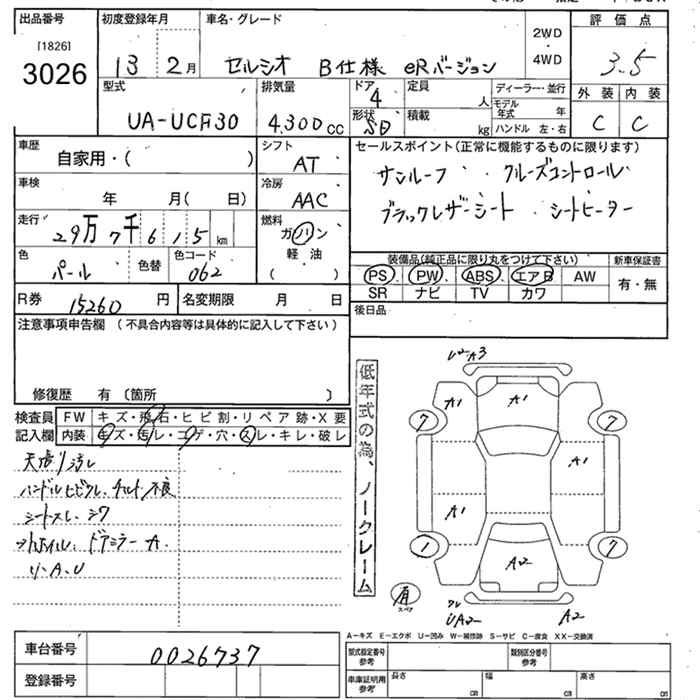 出品番号 初度登録年月 車名・グレード 評価点
[1826]
3026
13 2月 セルシオ B仕様 eRバージョン
2WD
・
4WD
3.5
型式 排気量 ドア 定員 ディーラー・並行 外装 内装
4 人 モデル年式 年
UA-UCF30 4,300cc
形状 SD 積載 kg ハンドル 左・右
C C
車歴 シフト セールスポイント(正常に機能するものに限ります)
自家用・( ) AT
サンルーフ クルーズコントロール
車検 冷房
年 月( 日) AAC
ブラックレザーシート・シートヒーター
走行 燃料
29万7千615km ガソリン
装備品(純正品に限り丸をつけて下さい) 新車保証書
色 色替 色コード 軽油
パール 062 ( )
PS PW ABS エアB AW 有・無
SR ナビ TV カワ
R券 15260円 名変期限 月 日
後日品
注意事項申告欄(不具合内容等は具体的に記入して下さい)
修復歴 有〔箇所 〕
検査員 FW キズ・飛石・ヒビ割・リペア跡・X要
記入欄 内装 キズ・汚レ・コゲ・穴・スレ・キレ・破レ
天張り汚レ
ハンドルヒビワレ、チルト不良
シートスレ、シワ
ドアミラーA
リ-A、U
低年式の為、ノークレーム
A3
A1 A1
7 7
A1
A1
1 7
A2
有
スペア
ワレ
UA2 A2
A-キズ E-エクボ U-凹み W-補修跡 S-サビ C-腐食 XX-交換済
車台番号 0026737
登録番号
型式指定番号 参考 類別区分番号 参考
車庫証明用 参考 長さ cm 幅 cm 高さ cm